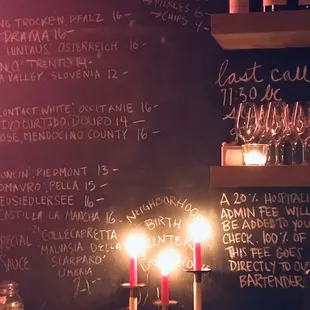 NG TROCKEN', PFALZ 16 -
DRAMA 16 -
HINTAUS' ÖSTERREICH 16 -
NCO' TRENTO 14 -
A VALLEY, SLOVENIA 12 -
CONTACT WHITE' OCCITANIE 16 -
IVO CURTIDO', DOURO 14 -
OSE, MENDOCINO COUNTY 16 -
UNCIN', PIEDMONT 13 -
OMAVRO', PELLA 15 -
EUSIEDLERSEE 16 -
CASTILLA LA MANCHA 16 -
SPECIAL
SAUCE
"COLLECAPRETTA
MALVASIA DELLA
SIARPARO"
UMBRIA
21 -
NEIGHBORHOOD
BIRTH
CENTER
PICKLES
CHIPS
last call
11:30
A 20% HOSPITALI
ADMIN FEE WILL
BE ADDED TO YOU
CHECK. 100% OF
THIS FEE GOES
DIRECTLY TO OUR
BARTENDER